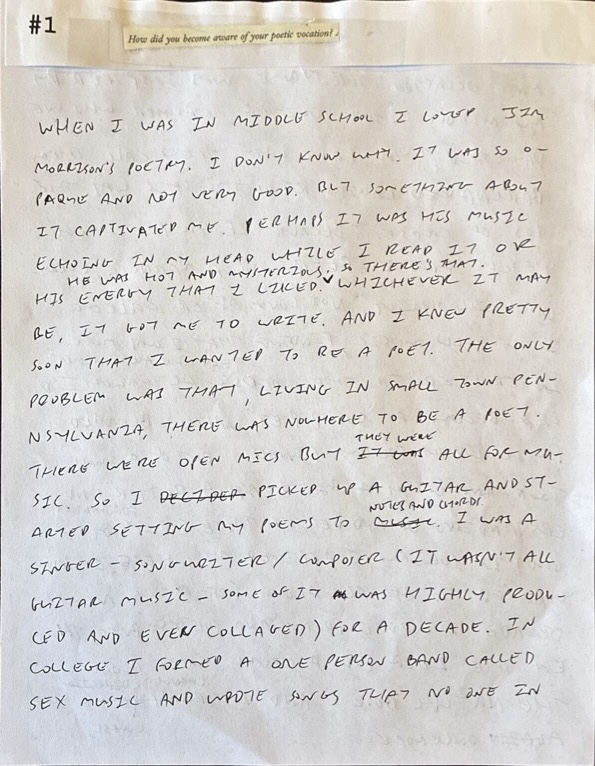 #1
How did you become aware of your poetic vocation?
WHEN I WAS IN MIDDLE SCHOOL I LOVED JIM
MORRISON'S POETRY. I DON'T KNOW WHY. IT WAS SO O-
PAQUE AND NOT VERY GOOD. BUT SOMETHING ABOUT
IT CAPTIVATED ME. PERHAPS IT WAS HIS MUSIC
ECHOING IN MY HEAD WHILE I READ IT OR
HE WAS HOT AND MYSTERIOUS. SO THERE'S THAT.
HIS ENERGY THAT I LIKED. WHICHEVER IT MAY
BE, IT GOT ME TO WRITE. AND I KNEW PRETTY
SOON THAT I WANTED TO BE A POET. THE ONLY
PROBLEM WAS THAT, LIVING IN SMALL TOWN PEN-
NSYLVANIA, THERE WAS NOWHERE TO BE A POET.
THEY WERE
THERE WERE OPEN MICS BUT IT WAS ALL FOR MU-
SIC. SO I DECIDED PICKED UP A GUITAR AND ST-
NOTES AND CHORDS.
ARTED SETTING MY POEMS TO MUSIC. I WAS A
SINGER-SONGWRITER/COMPOSER (IT WASN'T ALL
GUITAR MUSIC - SOME OF IT WAS HIGHLY PRODU-
CED AND EVEN COLLAGED) FOR A DECADE. IN
COLLEGE I FORMED A ONE PERSON BAND CALLED
SEX MUSIC AND WROTE SONGS THAT NO ONE IN